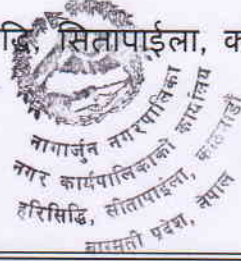 द्धि, सितापाईला, क
नागार्जुन नगरपालिका
नगर कार्यपालिकाको कार्यालय
हरिसिद्धि, सीतापाइला, काठमाडौं
बागमती प्रदेश, नेपाल